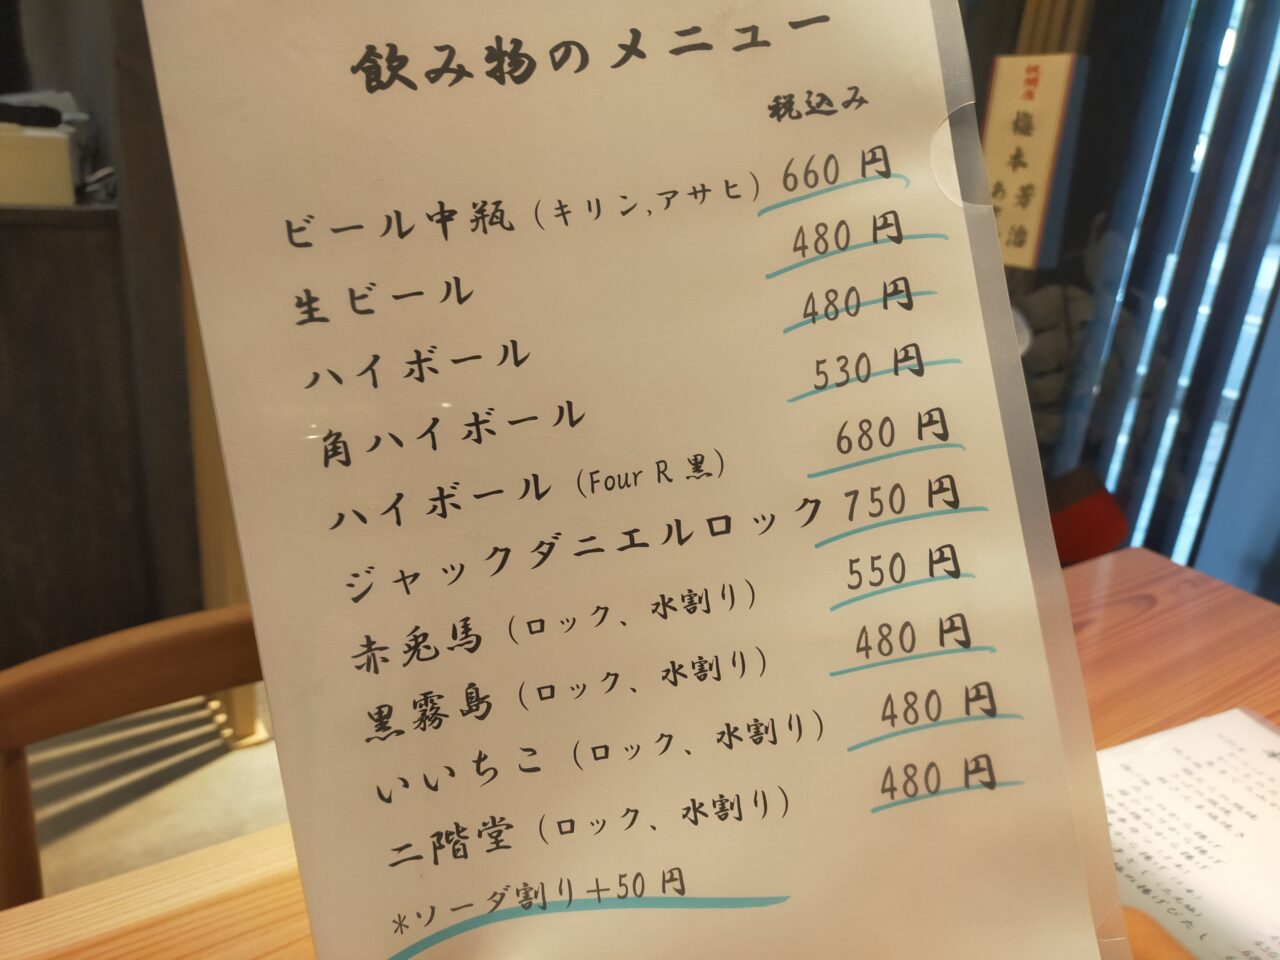 飲み物のメニュー
税込み
ビール中瓶(キリン,アサヒ) 660 円
生ビール 480 円
ハイボール 480 円
角ハイボール 530 円
ハイボール(Four R 黒) 680 円
ジャックダニエルロック 750 円
赤兎馬(ロック、水割り) 550 円
黒霧島(ロック、水割り) 480 円
いいちこ(ロック、水割り) 480 円
二階堂(ロック、水割り) 480 円
*ソーダ割り+50 円
祝開店